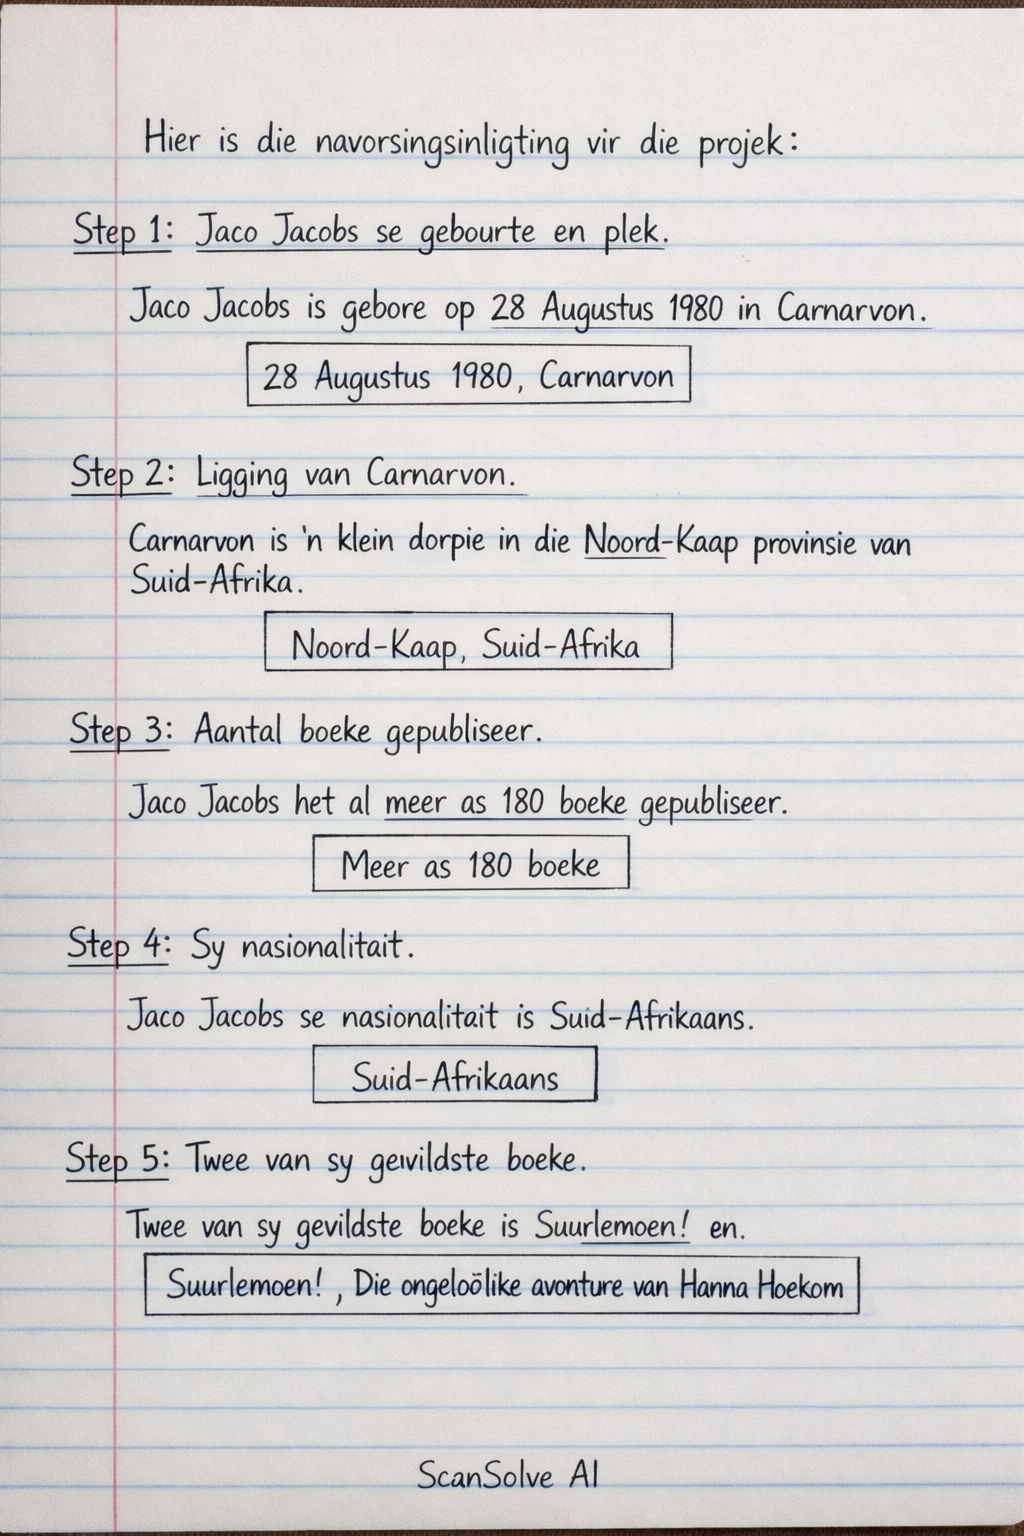 Hier is die navorsingsinligting vir die projek:
Step 1: Jaco Jacobs se gebourte en plek.
Jaco Jacobs is gebore op 28 Augustus 1980 in Carnarvon.
28 Augustus 1980, Carnarvon
Step 2: Ligging van Carnarvon.
Carnarvon is 'n klein dorpie in die Noord-Kaap provinsie van
Suid-Afrika.
Noord-Kaap, Suid-Afrika
Step 3: Aantal boeke gepubliseer.
Jaco Jacobs het al meer as 180 boeke gepubliseer.
Meer as 180 boeke
Step 4: Sy nasionalitait.
Jaco Jacobs se nasionalitait is Suid-Afrikaans.
Suid-Afrikaans
Step 5: Twee van sy gewildste boeke.
Twee van sy gevildste boeke is Suurlemoen! en.
Suurlemoen! , Die ongeloölike avonture van Hanna Hoekom
ScanSolve AI